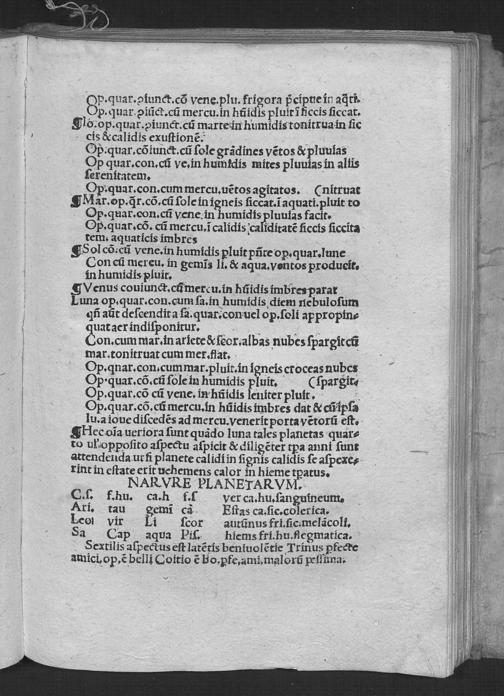 Op.quar.ꝯiunct.cõ vene.plu.frigora p̃cipue in aq̃ti.
Op.quar.ꝯiũct.cũ mercu.in hũidis pluit ĩ siccis siccat.
¶Io.op.quar.ꝯiunct.cũ marte in humidis tonitrua in sic
cis & calidis exustionẽ.
Op.quar.cõiunct.cũ sole grãdines vẽtos & pluuias
Op quar.con.cũ ve.in humidis mites pluuias in aliis
serenitatem.
Op.quar.con.cum mercu.uẽtos agitatos. (nitruat
¶Mar.op.q̃r.cõ.cũ sole in igneis siccat.ĩ aquati.pluit to
Op.quar.con.cũ vene.in humidis pluuias facit.
Op.quar.cõ.cũ mercu.ĩ calidis caliditatẽ siccis siccita
tem.aquaticis imbres
¶Sol cõ.cũ vene.in humidis pluit pñte op.quar.lune
Con cũ mercu.in gemĩs li.& aqua.ventos producit.
in humidis pluit.
¶Venus coniunct.cũ mercu.in hũidis imbres parat
Luna op.quar.con.cum sa.in humidis diem nebulosum
qñ aũt descendit a sã.quar.con uel op.soli appropin⸗
quat aer indisponitur.
Con.cum mar.in ariete & scor.albas nubes spargit cũ
mar.tonitruat cum mer.flat.
Op.quar.con.cum mar.pluit.in igneis croceas nubes
Op.quar.cõ.cũ sole in humidis pluit. (spargit.
Op.quar.cõ cũ vene.in hũidis leniter pluit.
Op.quar.cõ.cũ mercu.in hũidis imbres dat & cũ ipsa
lu.a ioue discedẽs ad mercu.venerit porta vẽtorũ est.
¶Hec oĩa ueriora sunt quãdo luna tales planetas quar⸗
to ul' opposito aspectu aspicit & diligẽter tpa anni sunt
attendenda ut si planete calidi in signis calidis se aspexe⸗
rint in estate erit uehemens calor in hieme tpatus.
NARVRE PLANETARVM.
C.s. f.hu. ca.h f.s ver ca.hu.sanguineum.
Ari. tau gemĩ cã Estas ca.sic.colerica.
Leoi vir Li scor autũnus fri.sic.melãcoli.
Sa Cap aqua Pis. hiems fri.hu.flegmatica.
Sextilis aspectus est latẽtis beniuolẽtie Trinus pfecte
amici.op.ẽ belli Coitio ẽ bo.pfe.ami.malorũ pessima.